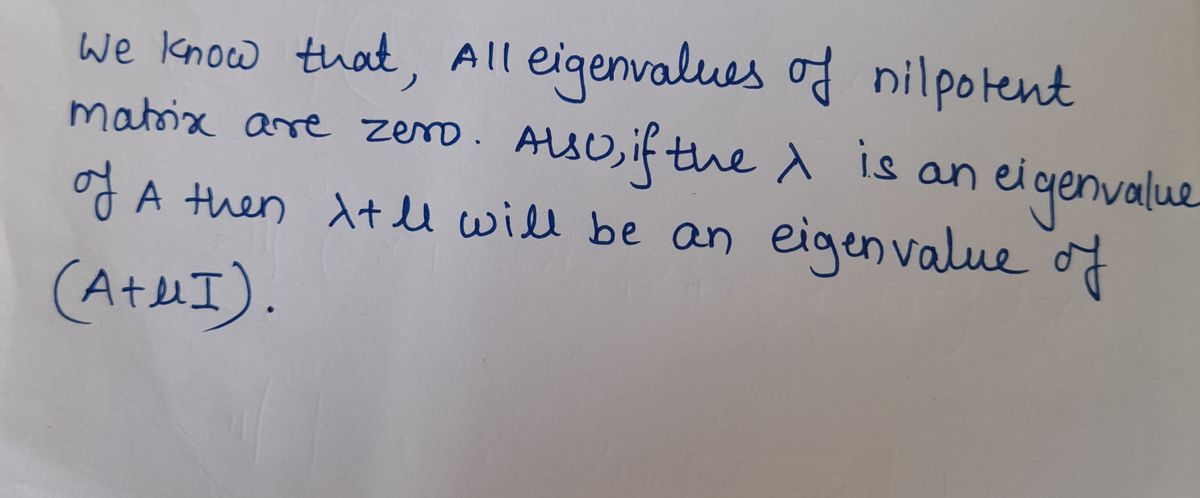 We know that, All eigenvalues of nilpotent
matrix are zero. Also, if the λ is an eigenvalue
of A then λ+μ will be an eigenvalue of
(A+μI).